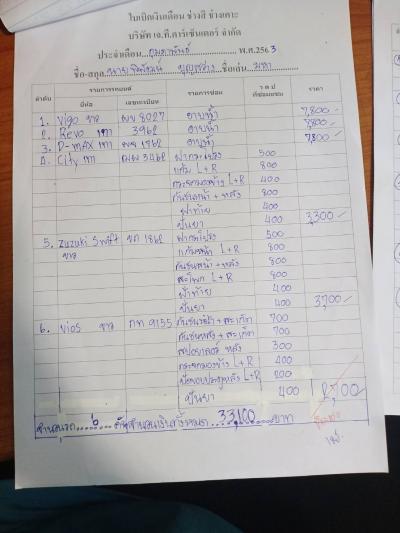 ใบเบิกเงินเดือน ช่างสี ช่างเคาะ
บริษัท เอ.ที.คาร์เซ็นเตอร์ จำกัด
ประจำเดือน กุมภาพันธ์ พ.ศ.2563
ชื่อ-สกุล นาย ชื่อเล่น
ลำดับ รายการรถยนต์ รายการซ่อม ราคา
ยี่ห้อ เลขทะเบียน
1. Vigo ขาว 8027 อาบน้ำ 7,800
2. Revo เทา 3962 อาบน้ำ 7,800
3. D-max เทา 1762 อาบน้ำ 7,800
4. City เทา 3462 ฝากระโปรง 500
แก้ม L+R 800
กระจกมองข้าง L+R 400
กันชนหน้า + หลัง 800
ฝาท้าย 400
ปั้นยา 400 3,300
5. Zuzuki Swift ขาว 1862 ฝากระโปรง 500
แก้มหน้า L+R 800
กันชนหน้า + หลัง 800
สเกิ๊ต L+R 800
ฝาท้าย 400
ปั้นยา 400 3,700
6. Vios ขาว กท 9155 กันชนหน้า + สเกิ๊ต 700
กันชนหลัง + สเกิ๊ต 700
สปอยเลอร์ หลัง 300
กระจกมองข้าง L+R 400
L+R 200
ปั้นยา 400 2,700
จำนวนรถ 6 คัน จำนวนเงินทั้งหมด 33,100 บาท